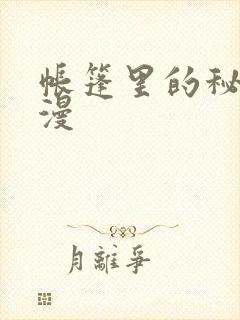 帳篷里的秘
漫
月離爭